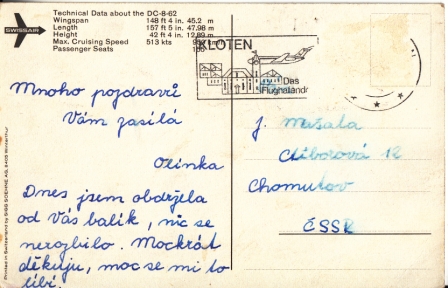 Technical Data about the DC-8-62
Wingspan 148 ft 4 in. 45.2 m
Length 157 ft 5 in. 47.98 m
Height 42 ft 4 in. 12.89 m
Max. Cruising Speed 513 kts
Passenger Seats
SWISSAIR
KLOTEN
Das
Mnoho pozdravů
Vám zasílá
Ozinka
Dnes jsem obdržela
od Vás balík, nic se
nerozbilo. Mockrát
děkuju, moc se mi to
líbí.
J. Mašata
Ctiborova 12
Chomutov
ČSSR
Printed in Switzerland by